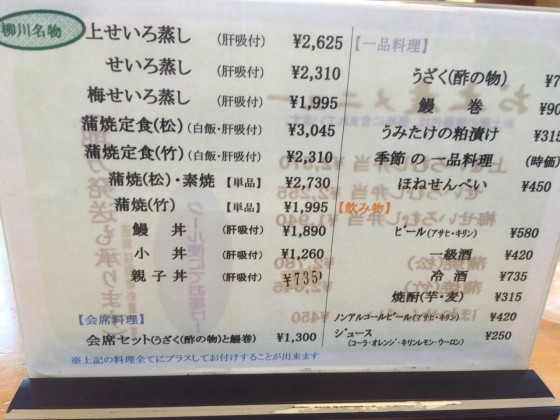 柳川名物
上せいろ蒸し (肝吸付) ¥2,625
せいろ蒸し (肝吸付) ¥2,310
梅せいろ蒸し (肝吸付) ¥1,995
蒲焼定食(松) (白飯・肝吸付) ¥3,045
蒲焼定食(竹) (白飯・肝吸付) ¥2,310
蒲焼(松)・素焼 【単品】 ¥2,730
蒲焼(竹) 【単品】 ¥1,995
鰻丼 (肝吸付) ¥1,890
小丼 (肝吸付) ¥1,260
親子丼 (肝吸付) ¥735
【会席料理】
会席セット(うざく(酢の物)と鰻巻) ¥1,300
※上記の料理全てにプラスしてお付けすることが出来ます
【一品料理】
うざく(酢の物)
鰻巻
うみたけの粕漬け ¥315
季節の一品料理 (時価)
ほねせんべい ¥450
【飲み物】
ビール(アサヒ・キリン) ¥580
一級酒 ¥420
冷酒 ¥735
焼酎(芋・麦) ¥315
ノンアルコールビール(アサヒ・キリン) ¥420
ジュース ¥250
(コーラ・オレンジ・キリンレモン・ウーロン)